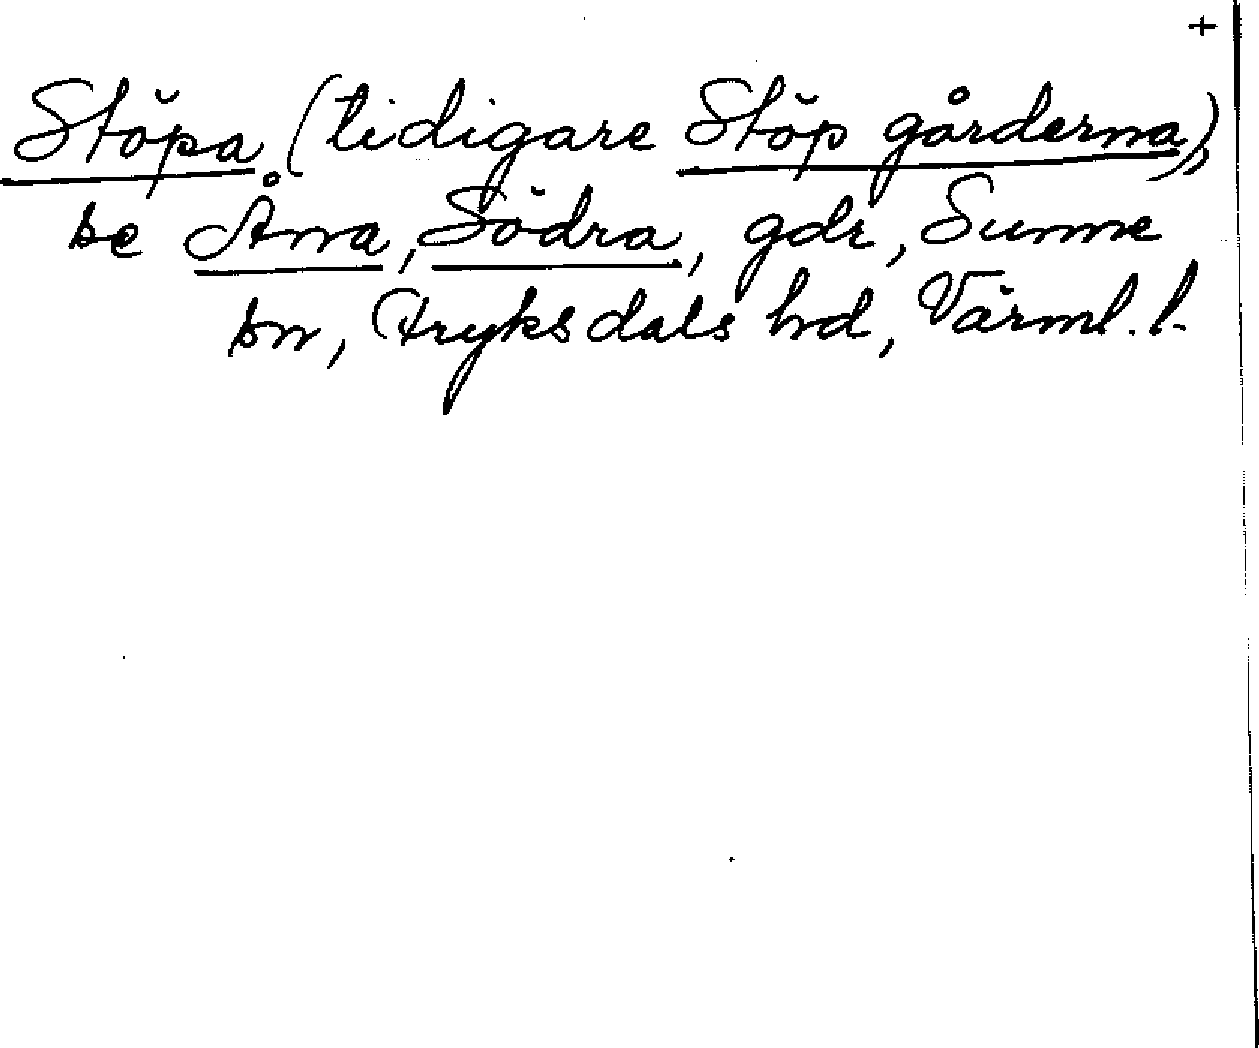 +
Stöpa (tidigare Stöp gårderna),
se Åna, Södra, gdr, Sunne
sn, Fryksdals hd, Värml. l.